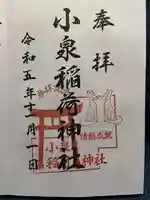 奉拝
小泉稲荷神社
令和五年十一月一日
小泉
稲荷神社